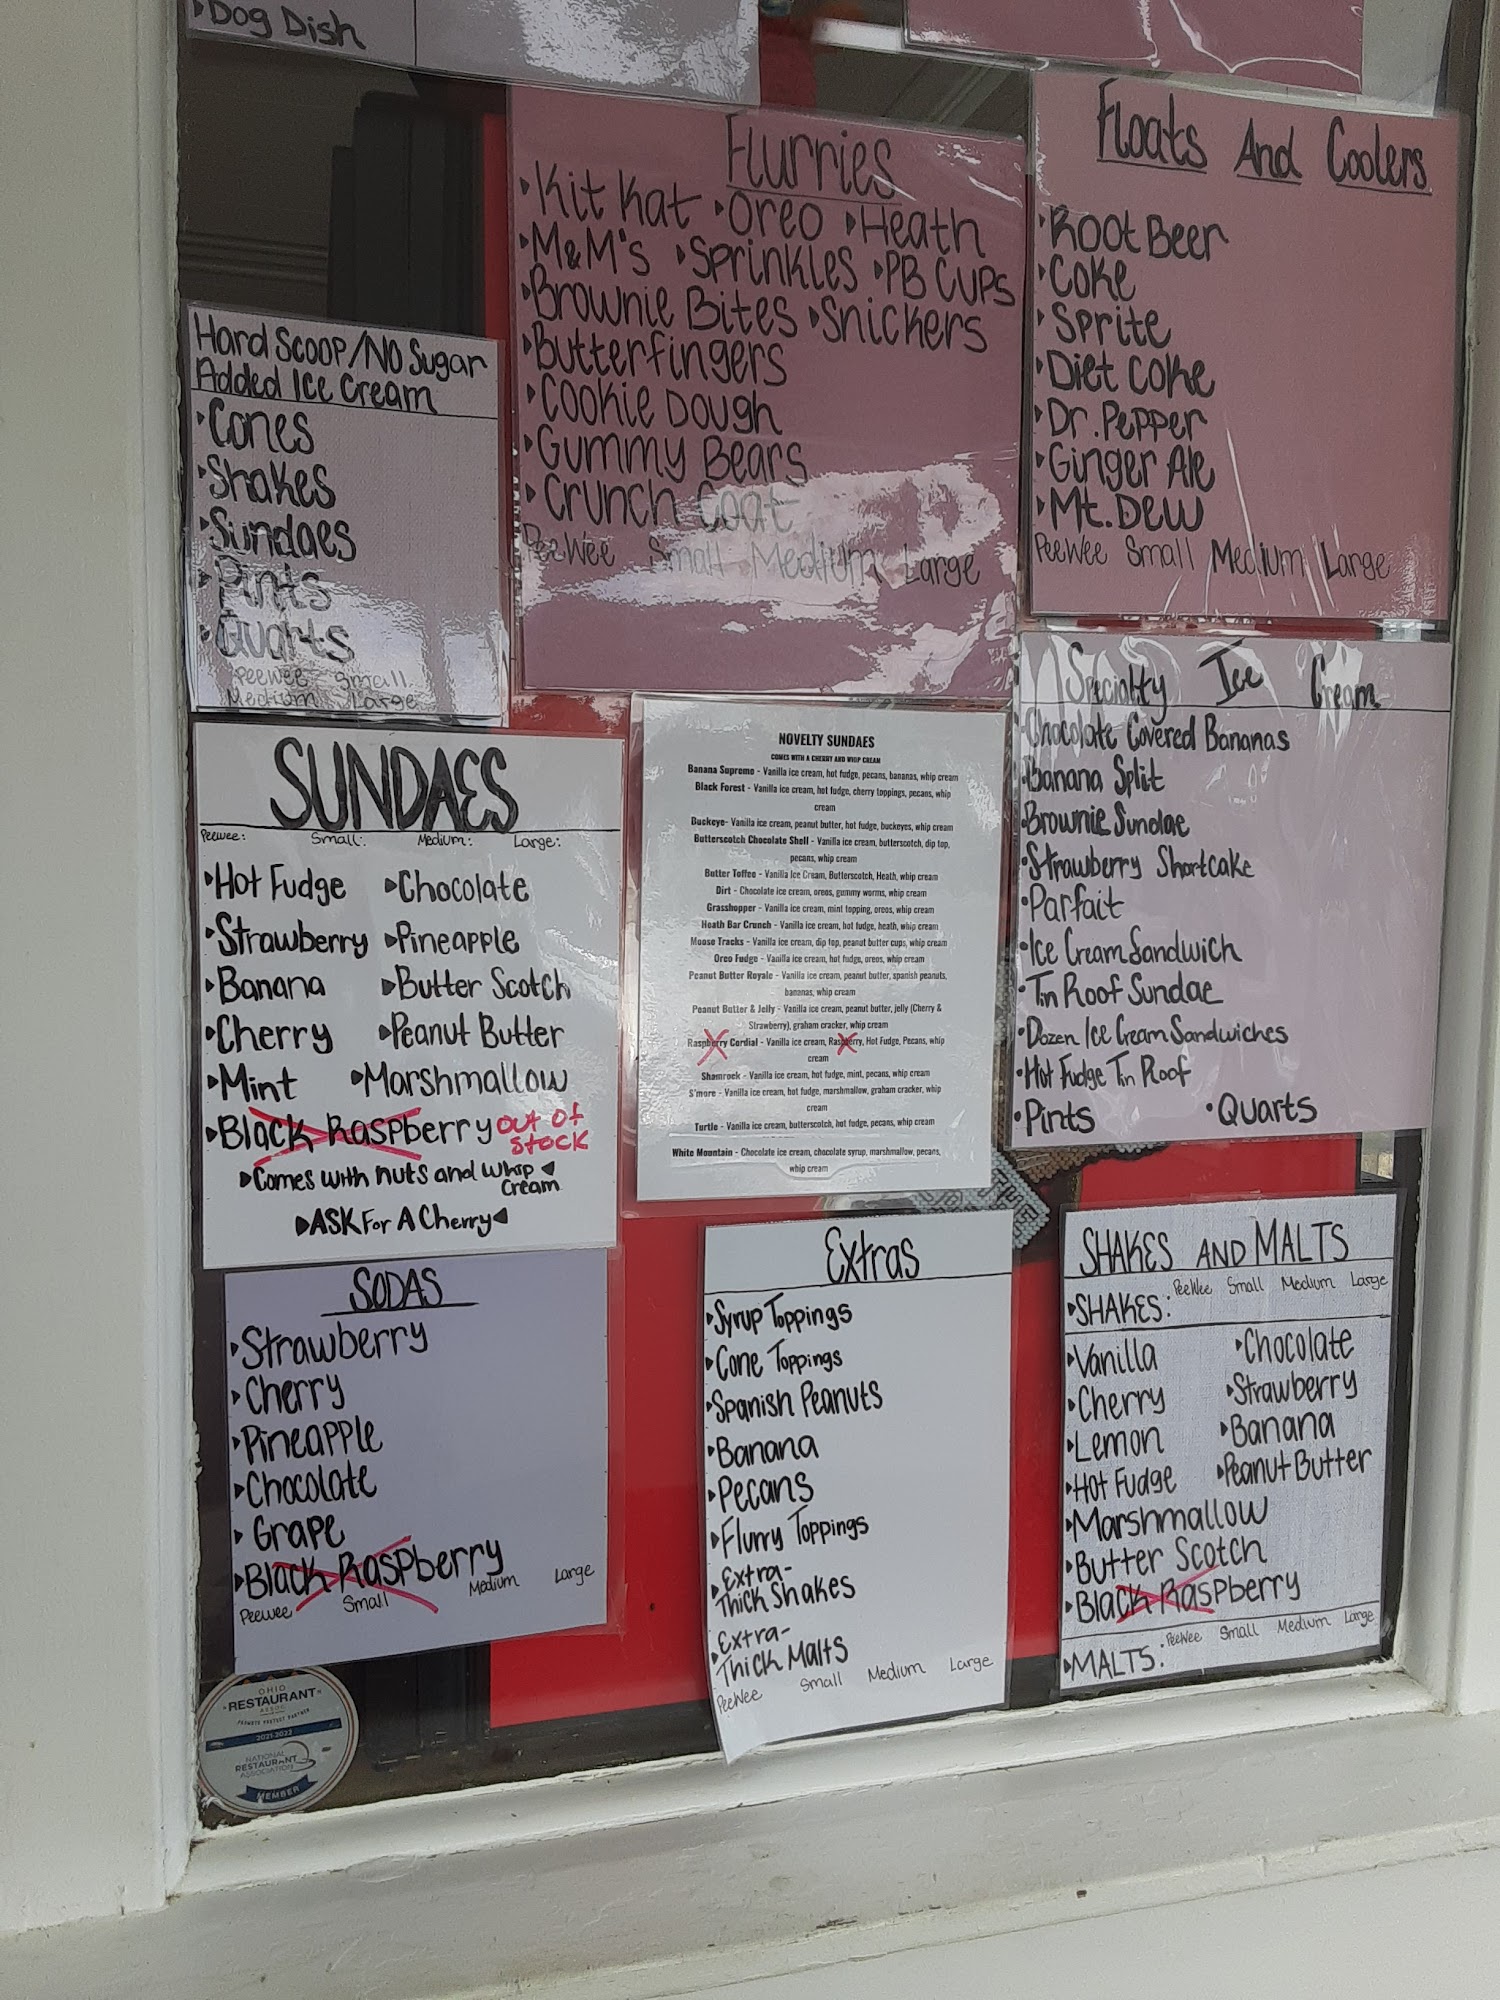 Dog Dish
Flurries
Kit Kat Oreo Heath
M&M's Sprinkles PB Cups
Brownie Bites Snickers
Butterfingers
Cookie Dough
Gummy Bears
Crunch Coat
PeeWee Small Medium Large
Floats And Coolers
Root Beer
Coke
Sprite
Diet Coke
Dr. Pepper
Ginger Ale
Mt. Dew
PeeWee Small Medium Large
Hard Scoop/No Sugar
Added Ice Cream
Cones
Shakes
Sundaes
Pints
Quarts
PeeWee Small
Medium Large
SUNDAES
Peewee: Small: Medium: Large:
Hot Fudge Chocolate
Strawberry Pineapple
Banana Butter Scotch
Cherry Peanut Butter
Mint Marshmallow
Black Raspberry OUT OF
STOCK
Comes with nuts and whip
Cream
ASK For A Cherry
NOVELTY SUNDAES
COMES WITH A CHERRY AND WHIP CREAM
Banana Supreme - Vanilla ice cream, hot fudge, pecans, bananas, whip cream
Black Forest - Vanilla ice cream, hot fudge, cherry toppings, pecans, whip
cream
Buckeye- Vanilla ice cream, peanut butter, hot fudge, buckeyes, whip cream
Butterscotch Chocolate Shell - Vanilla ice cream, butterscotch, dip top,
pecans, whip cream
Butter Toffee - Vanilla Ice Cream, Butterscotch, Heath, whip cream
Dirt - Chocolate ice cream, oreos, gummy worms, whip cream
Grasshopper - Vanilla ice cream, mint topping, oreos, whip cream
Heath Bar Crunch - Vanilla ice cream, hot fudge, heath, whip cream
Moose Tracks - Vanilla ice cream, dip top, peanut butter cups, whip cream
Oreo Fudge - Vanilla ice cream, hot fudge, oreos, whip cream
Peanut Butter Royale - Vanilla ice cream, peanut butter, spanish peanuts,
bananas, whip cream
Peanut Butter & Jelly - Vanilla ice cream, peanut butter, jelly (Cherry &
Strawberry), graham cracker, whip cream
Raspberry Cordial - Vanilla ice cream, Raspberry, Hot Fudge, Pecans, whip
cream
Shamrock - Vanilla ice cream, hot fudge, mint, pecans, whip cream
S'more - Vanilla ice cream, hot fudge, marshmallow, graham cracker, whip
cream
Turtle - Vanilla ice cream, butterscotch, hot fudge, pecans, whip cream
White Mountain - Chocolate ice cream, chocolate syrup, marshmallow, pecans,
whip cream
Specialty Ice Cream
Chocolate Covered Bananas
Banana Split
Brownie Sundae
Strawberry Shortcake
Parfait
Ice Cream Sandwich
Tin Roof Sundae
Dozen Ice Cream Sandwiches
Hot Fudge Tin Roof
Pints Quarts
SODAS
Strawberry
Cherry
Pineapple
Chocolate
Grape
Black Raspberry
Peewee Small Medium Large
Extras
Syrup Toppings
Cone Toppings
Spanish Peanuts
Banana
Pecans
Flurry Toppings
Extra-
Thick Shakes
Extra-
Thick Malts
PeeWee Small Medium Large
SHAKES AND MALTS
SHAKES: PeeWee Small Medium Large
Vanilla Chocolate
Cherry Strawberry
Lemon Banana
Hot Fudge Peanut Butter
Marshmallow
Butter Scotch
Black Raspberry
MALTS: PeeWee Small Medium Large
OHIO
RESTAURANT
ASSOC
PROMOTE PROTECT PARTNER
2021-2022
NATIONAL
RESTAURANT
ASSOCIATION
MEMBER